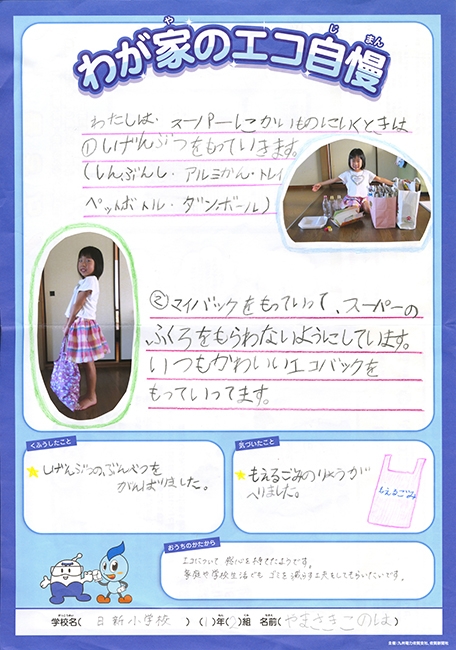 わが家のエコ自慢
わたしは、スーパーにかいものにいくときは
①しげんぶつをもっていきます。
(しんぶんし・アルミかん・トレイ
ペットボトル・ダンボール)
②マイバックをもっていって、スーパーの
ふくろをもらわないようにしています。
いつもかわいいエコバックを
もっていってます。
くふうしたこと
しげんぶつの、ぶんべつを
がんばりました。
気づいたこと
もえるごみのりょうが
へりました。
もえるごみ
おうちのかたから
エコについて 関心を持てたようです。
家庭や学校生活でも ゴミを減らす工夫をしてもらいたいです。
学校名( 日新小学校 ) (1)年(2)組 名前(やまさきこのは)
主催:九州電力佐賀支社、佐賀新聞社